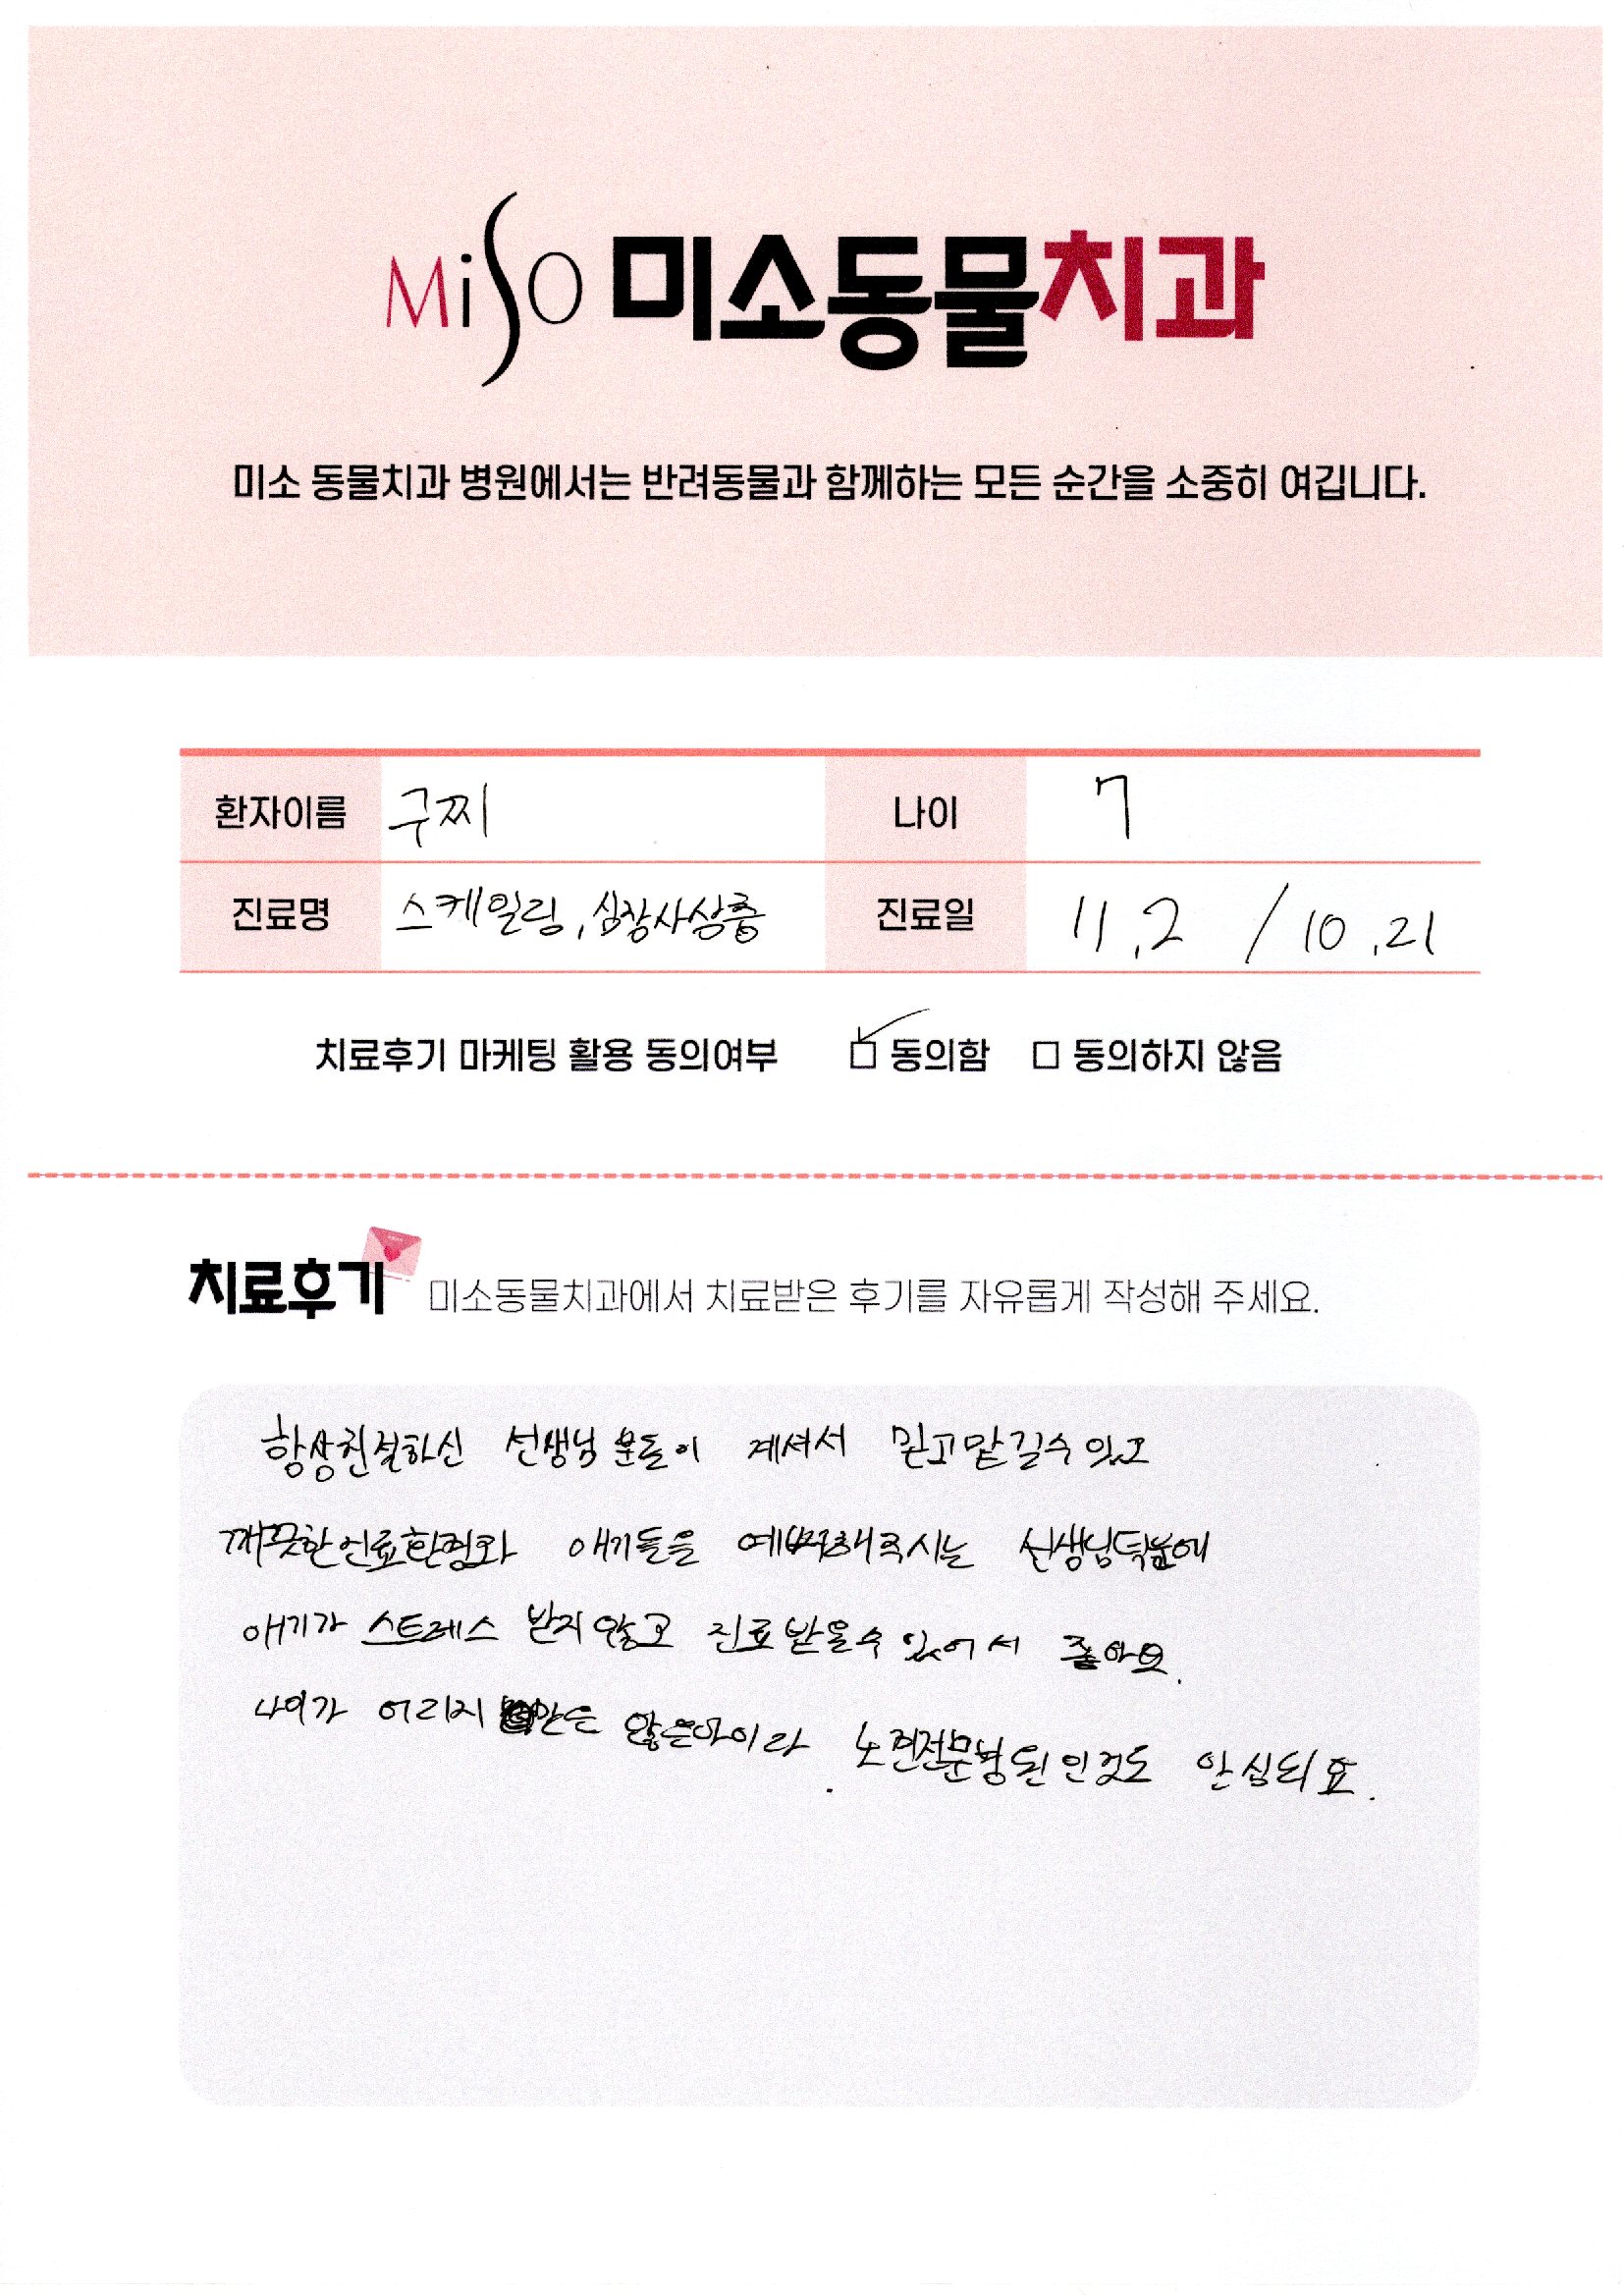 MiSO 미소동물치과
미소 동물치과 병원에서는 반려동물과 함께하는 모든 순간을 소중히 여깁니다.
환자이름 구찌 나이 7
진료명 스케일링, 심장사상충 진료일 11.2 / 10.21
치료후기 마케팅 활용 동의여부 ☑ 동의함 ☐ 동의하지 않음
치료후기 미소동물치과에서 치료받은 후기를 자유롭게 작성해 주세요.
항상친절하신 선생님 분들이 계셔서 믿고맡길수 있고
깨끗한 의료환경과 애기들을 예뻐해주시는 선생님덕분에
애기가 스트레스 받지않고 진료받을수 있어서 좋아요.
나이가 어리지 만은 않은아이라 노견전문병원인것도 안심되요.